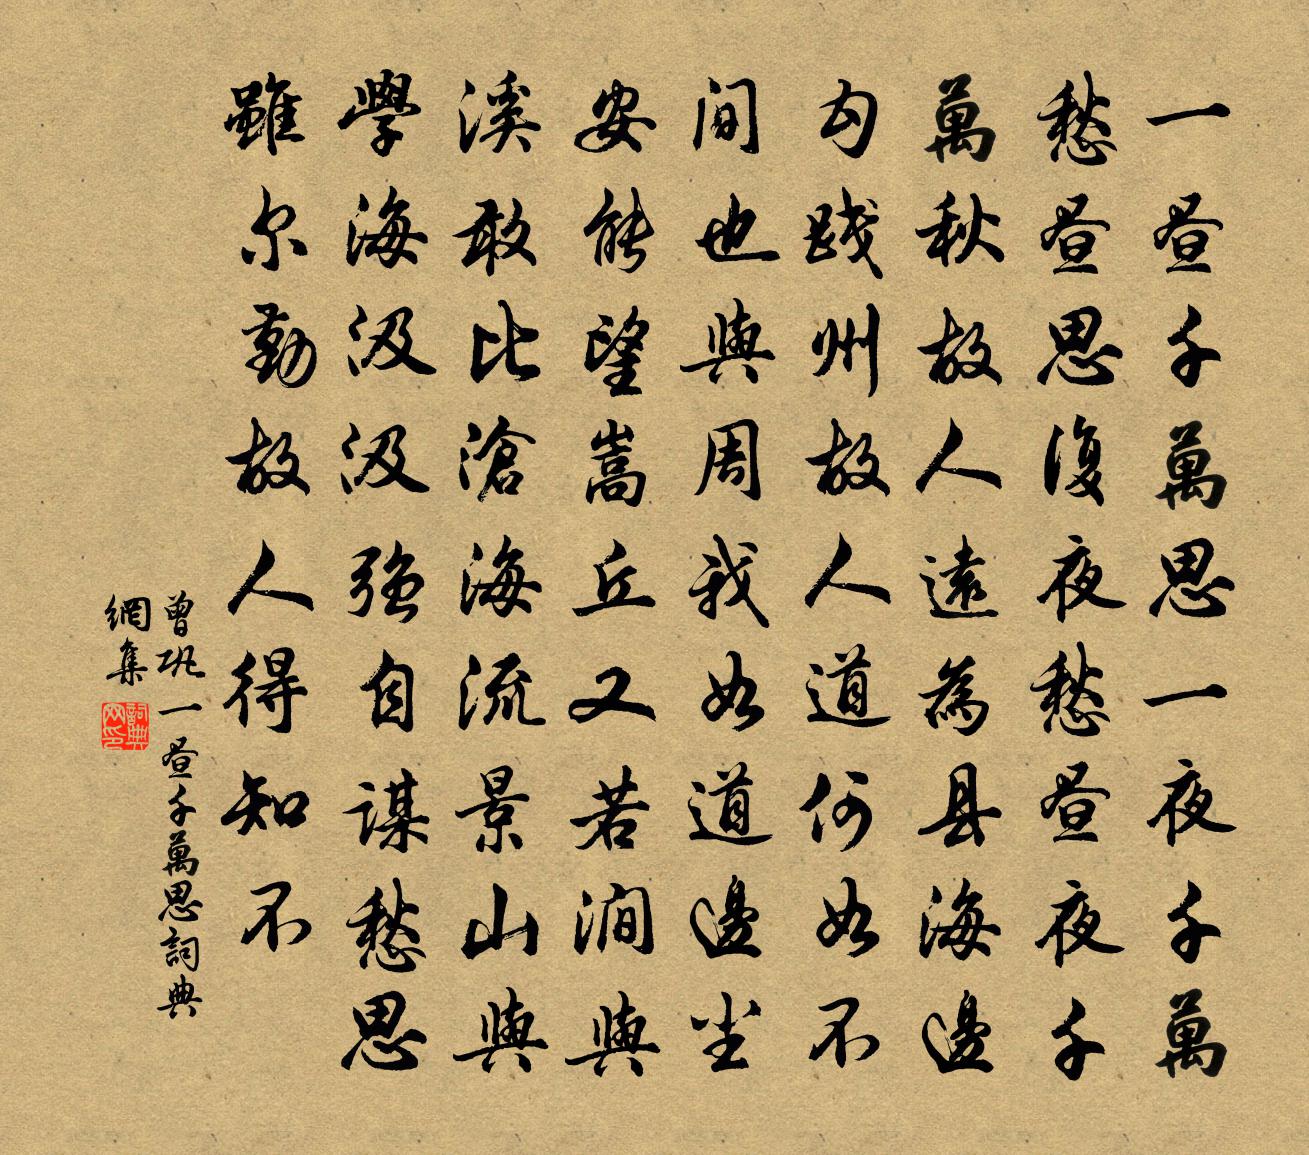 一昼千萬思一夜千萬
愁昼思復夜愁昼夜千
萬秋故人遠為县海邊
勾踐州故人道何如不
間也與周我如道邊尘
安能望嵩丘又若澗與
溪敢比滄海流景山與
學海汲汲强自謀愁思
雖尔勤故人得知不
曾巩一昼千萬思詞典
網集
詞典
网印